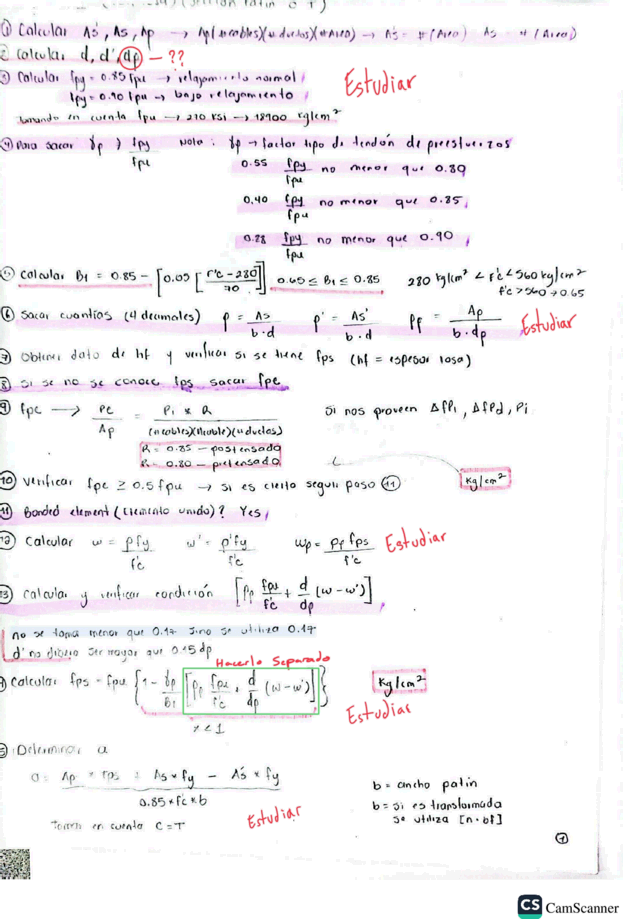 (sección Patin o T)
① Calcular As', As, Ap → Ap(#cables)(#ductos)(#Area) → As' = #(Area)   As = #(Area)
2 Calcular d, d', dp — ??
③ Calcular fpy = 0.85 fpu → relajamiento normal
fpy = 0.90 fpu → bajo relajamiento
Estudiar
tomando en cuenta fpu → 270 ksi → 18900 kg/cm²
④ Para sacar γp ) fpy/fpu   Nota: γp → factor tipo de tendón de preesfuerzos
0.55  fpy/fpu no menor que 0.80
0.40  fpy/fpu no menor que 0.85
0.28  fpy/fpu no menor que 0.90
⑤ Calcular B1 = 0.85 - [0.05 [f'c - 280 / 70]]   0.65 ≤ B1 ≤ 0.85   280 kg/cm² < f'c < 560 kg/cm²
f'c > 560 → 0.65
⑥ Sacar cuantías (4 decimales)   ρ = As / b·d   ρ' = As' / b·d   ρp = Ap / b·dp   Estudiar
⑦ Obtener dato de hf y verificar si se tiene fps (hf = espesor losa)
⑧ Si se no se conoce fps sacar fpe
⑨ fpe → Pe / Ap = Pi x R / (#cables)(#cable)(#ductos)   Si nos proveen Δfpi, Δfpd, Pi
R = 0.85 — postensado
R = 0.80 — pretensado
⑩ Verificar fpe ≥ 0.5 fpu → si es cierto seguir paso ⑪   kg/cm²
⑪ Bonded element (Elemento unido)? Yes
⑫ Calcular   ω = ρfy / f'c   ω' = ρ'fy / f'c   ωp = ρp fps / f'c   Estudiar
⑬ Calcular y verificar condición [ρp fpu/f'c + d/dp (ω - ω')]
no se toma menor que 0.17 sino se utiliza 0.17
d' no debera ser mayor que 0.15 dp
Hacerlo Separado
Calcular fps = fpu {1 - γp/B1 [ρp fpu/f'c + d/dp (ω - ω')]}   kg/cm²
Estudiar
x < 1
Determinar a
a = Ap * fps + As * fy - As' * fy / 0.85 * f'c * b
b = ancho patin
b = si es transformada
se utiliza [n·bf]
Tomar en cuenta C = T
Estudiar
①
CS CamScanner